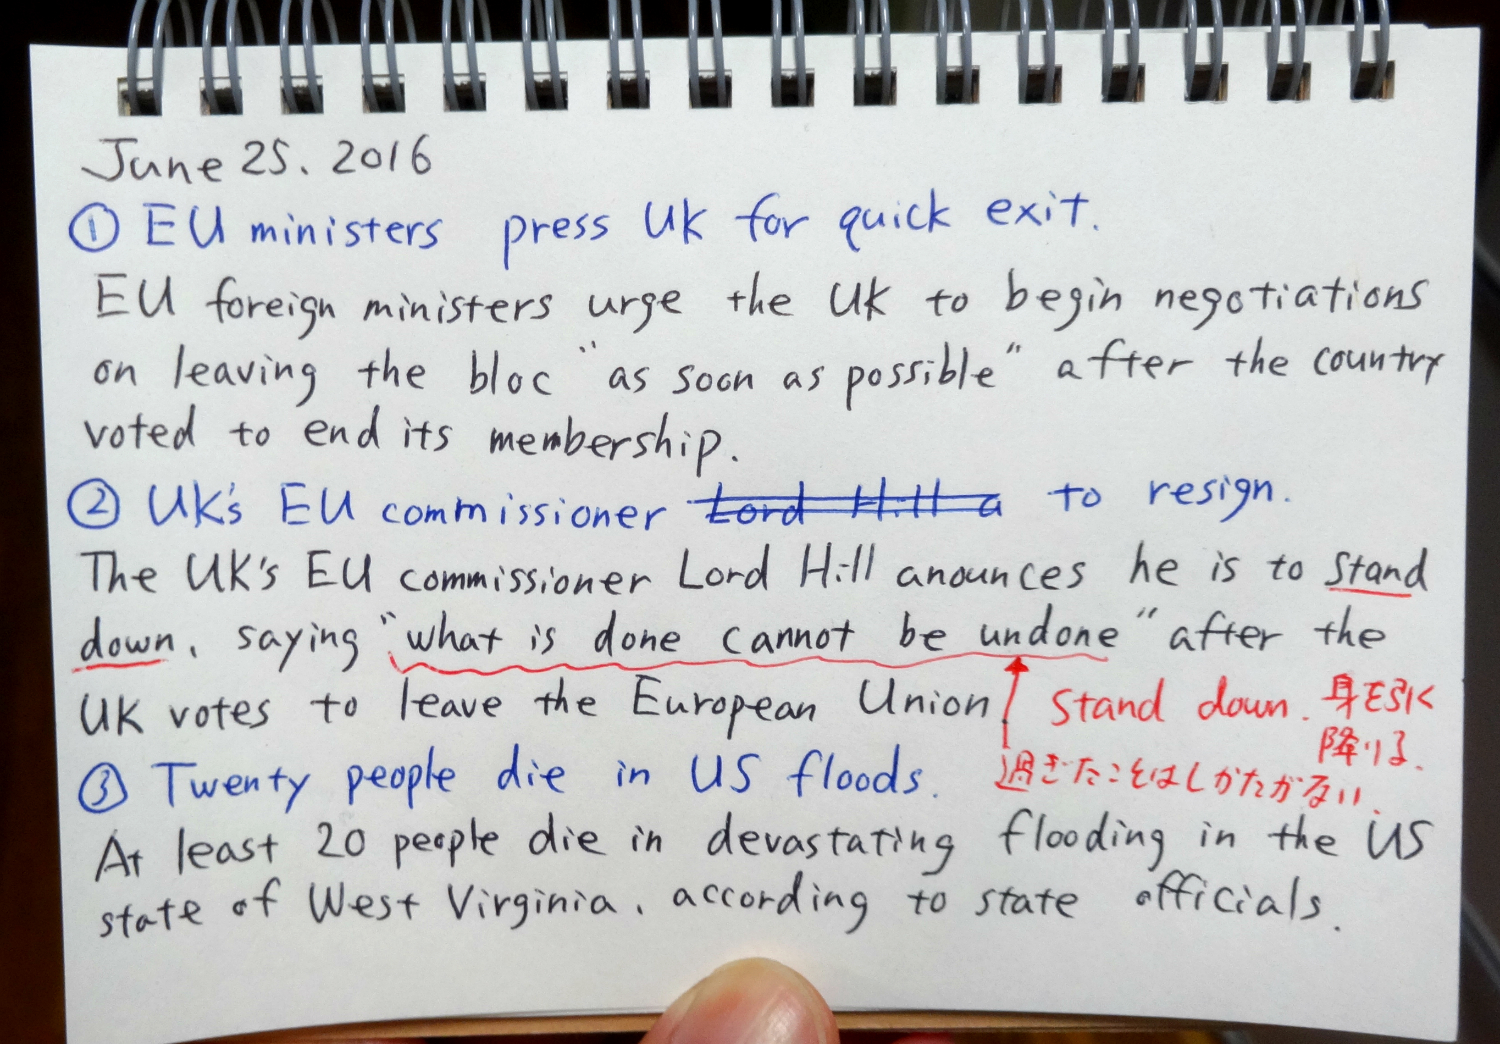 June 25. 2016
① EU ministers press UK for quick exit.
EU foreign ministers urge the UK to begin negotiations
on leaving the bloc "as soon as possible" after the country
voted to end its membership.
② UK's EU commissioner Lord Hill a to resign.
The UK's EU commissioner Lord Hill anounces he is to stand
down, saying "what is done cannot be undone" after the
UK votes to leave the European Union.
stand down. 身を引く
降りる.
過ぎたことはしかたがない.
③ Twenty people die in US floods.
At least 20 people die in devastating flooding in the US
state of West Virginia, according to state officials.